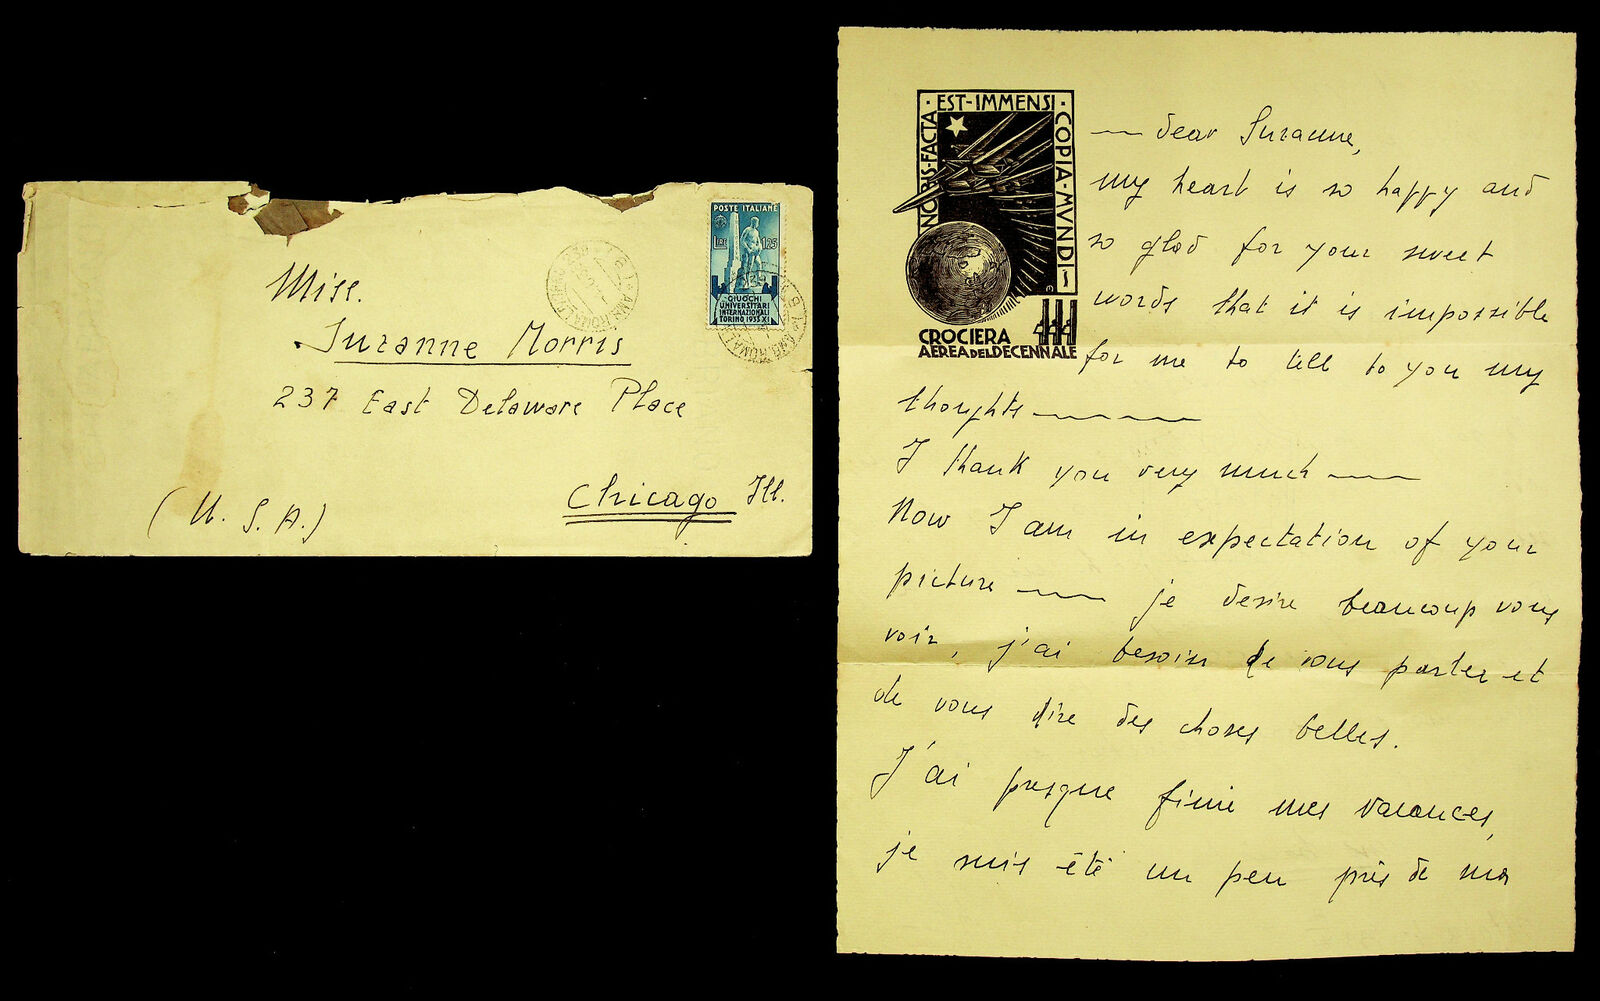 POSTE ITALIANE
LIRE 1,25
GIUOCHI
UNIVERSITARI
INTERNAZIONALI
TORINO 1933 XI
Miss.
Suzanne Morris
237 East Delaware Place
Chicago Ill.
(U. S. A.)
NOBIS-FACTA
·EST-IMMENSI·
COPIA-MVNDI-
CROCIERA
AEREA DEL DECENNALE
— dear Suzanne,
my heart is so happy and
so glad for your sweet
words that it is impossible
for me to tell to you my
thoughts ———
I thank you very much ——
Now I am in expectation of your
picture —— je desire beaucoup vous
voir, j'ai besoin de vous parler et
de vous dire des choses belles.
J'ai presque finie mes vacances,
je suis été un peu près de ma